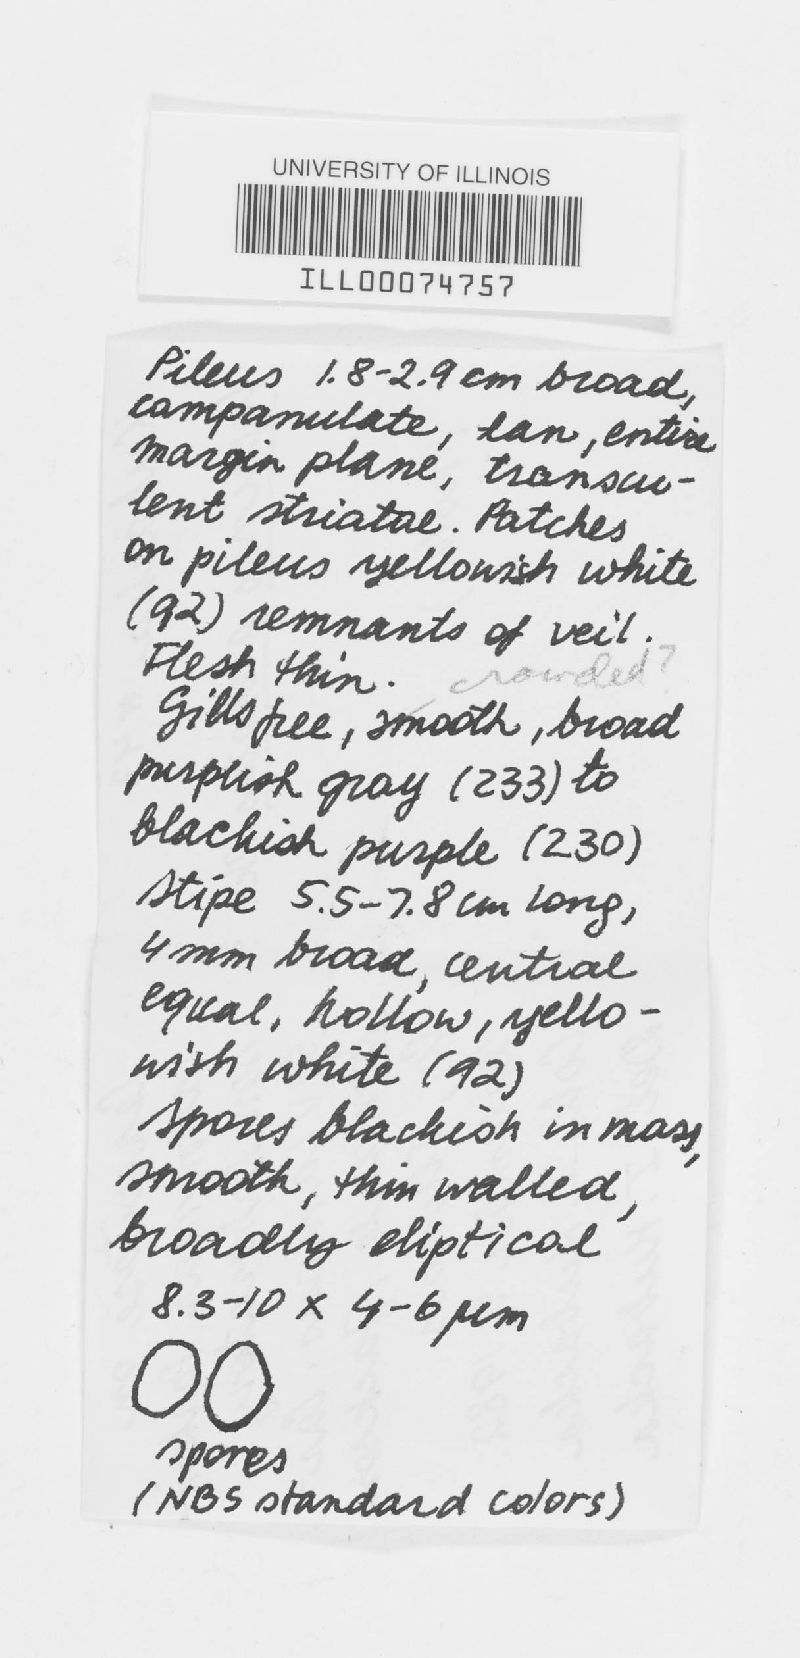 UNIVERSITY OF ILLINOIS
ILL00074757
Pileus 1.8-2.9 cm broad,
campanulate, tan, entire
margin plane, transcu-
lent striatae. Patches
on pileus yellowish white
(92) remnants of veil.
Flesh thin.
crowded?
Gills free, smooth, broad
purplish gray (233) to
blackish purple (230)
Stipe 5.5-7.8 cm long,
4 mm broad, central
equal, hollow, yello-
wish white (92)
Spores blackish in mass,
smooth, thin walled,
broadly eliptical
8.3-10 x 4-6 µm
spores
(NBS standard colors)